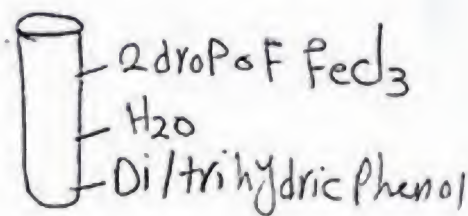 2 droP oF Fecl3
H2O
Di/trihydric Phenol